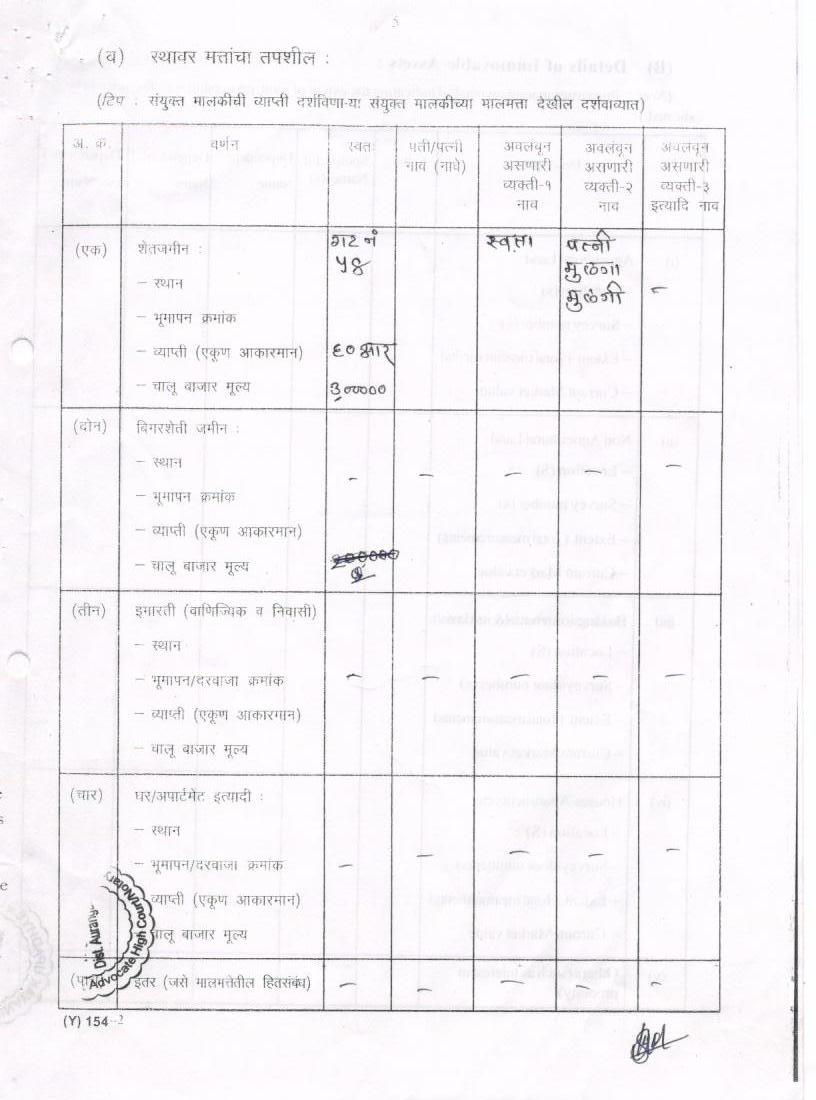 5
(ब) स्थावर मत्तांचा तपशील :
(टिप : संयुक्त मालकीची व्याप्ती दर्शविणाऱ्या संयुक्त मालकीच्या मालमत्ता देखील दर्शवाव्यात)
अ. क्र. वर्णन स्वतः पती/पत्नी नाव (नावे) अवलंबून असणारी व्यक्ती-१ नाव अवलंबून असणारी व्यक्ती-२ नाव अवलंबून असणारी व्यक्ती-३ इत्यादि नाव
(एक) शेतजमीन : गट नं स्वतः पत्नी
५४ मुलगा
– स्थान मुलगी –
– भूमापन क्रमांक
– व्याप्ती (एकूण आकारमान) ६० आर
– चालू बाजार मूल्य ३,०००००
(दोन) बिगरशेती जमीन :
– स्थान – – – – –
– भूमापन क्रमांक
– व्याप्ती (एकूण आकारमान)
– चालू बाजार मूल्य
(तीन) इमारती (वाणिज्यिक व निवासी)
– स्थान
– भूमापन/दरवाजा क्रमांक – – – – –
– व्याप्ती (एकूण आकारमान)
– चालू बाजार मूल्य
(चार) घर/अपार्टमेंट इत्यादी :
– स्थान
– भूमापन/दरवाजा क्रमांक – – – – –
व्याप्ती (एकूण आकारमान)
चालू बाजार मूल्य
इतर (जसे मालमत्तेतील हितसंबंध) – – – – –
Advocate High Court/Notary
Dist. Aurang
(Y) 154–2